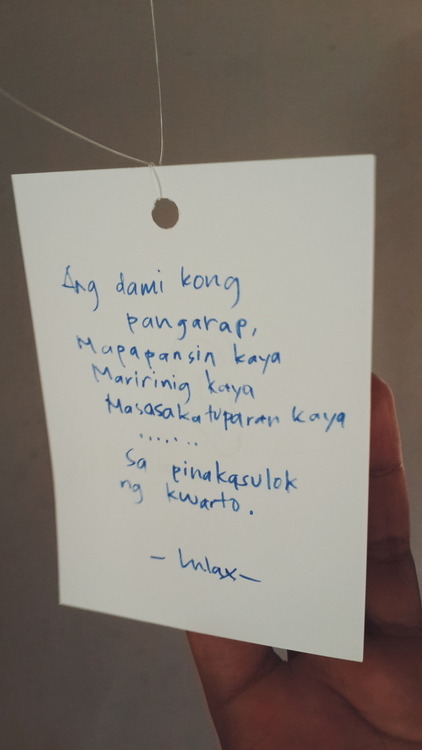 Ang dami kong
pangarap,
Mapapansin kaya
Maririnig kaya
Masasakatuparan kaya
.......
Sa pinakasulok
ng kwarto.